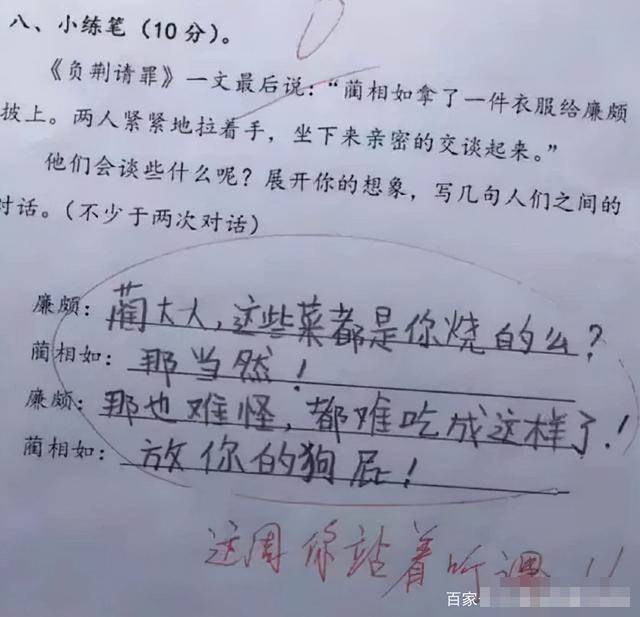 八、小练笔(10分)。
《负荆请罪》一文最后说:“蔺相如拿了一件衣服给廉颇
披上。两人紧紧地拉着手,坐下来亲密的交谈起来。”
他们会谈些什么呢?展开你的想象,写几句人们之间的
对话。(不少于两次对话)
廉颇:蔺大人,这些菜都是你烧的么?
蔺相如:那当然!
廉颇:那也难怪,都难吃成这样了!
蔺相如:放你的狗屁!
这周你站着听课!!
百家